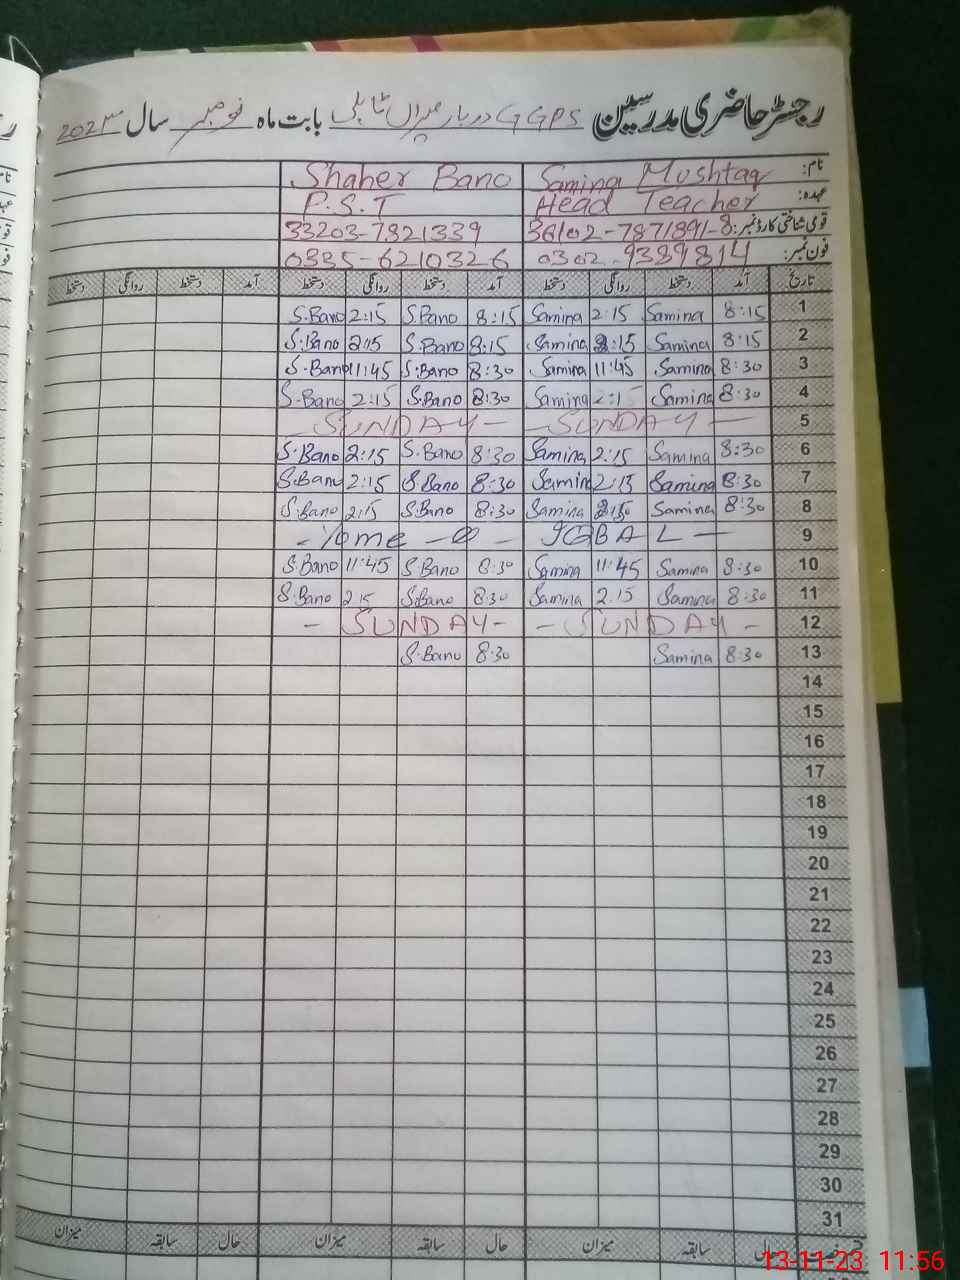 رجسٹر حاضری مدرسین GGPS دربار میراں ٹابلی بابت ماہ نومبر سال 2023
نام: Samina Mushtaq Shaher Bano
عہدہ: Head Teacher P.S.T
قومی شناختی کارڈ نمبر: 36102-7871891-8 33203-7821339
فون نمبر: 0302-9389814 0335-6210326
تاریخ آمد دستخط روانگی دستخط آمد دستخط روانگی دستخط آمد دستخط روانگی دستخط
1 8:15 Samina 2:15 Samina 8:15 S.Bano 2:15 S.Bano
2 8:15 Samina 2:15 Samina 8:15 S.Bano 2:15 S.Bano
3 8:30 Samina 11:45 Samina 8:30 S.Bano 11:45 S.Bano
4 8:30 Samina 2:15 Samina 8:30 S.Bano 2:15 S.Bano
5 - SUNDAY - - SUNDAY -
6 8:30 Samina 2:15 Samina 8:30 S.Bano 2:15 S.Bano
7 8:30 Samina 2:15 Samina 8:30 S.Bano 2:15 S.Bano
8 8:30 Samina 2:15 Samina 8:30 S.Bano 2:15 S.Bano
9 - Yome - e - IQBAL -
10 8:30 Samina 11:45 Samina 8:30 S.Bano 11:45 S.Bano
11 8:30 Samina 2.15 Samina 8:30 S.Bano 2 15 S.Bano
12 - SUNDAY - - SUNDAY -
13 8:30 Samina 8:30 S.Bano
14
15
16
17
18
19
20
21
22
23
24
25
26
27
28
29
30
31
حال سابقہ میزان حال سابقہ میزان حال سابقہ میزان
13-11-23 11:56